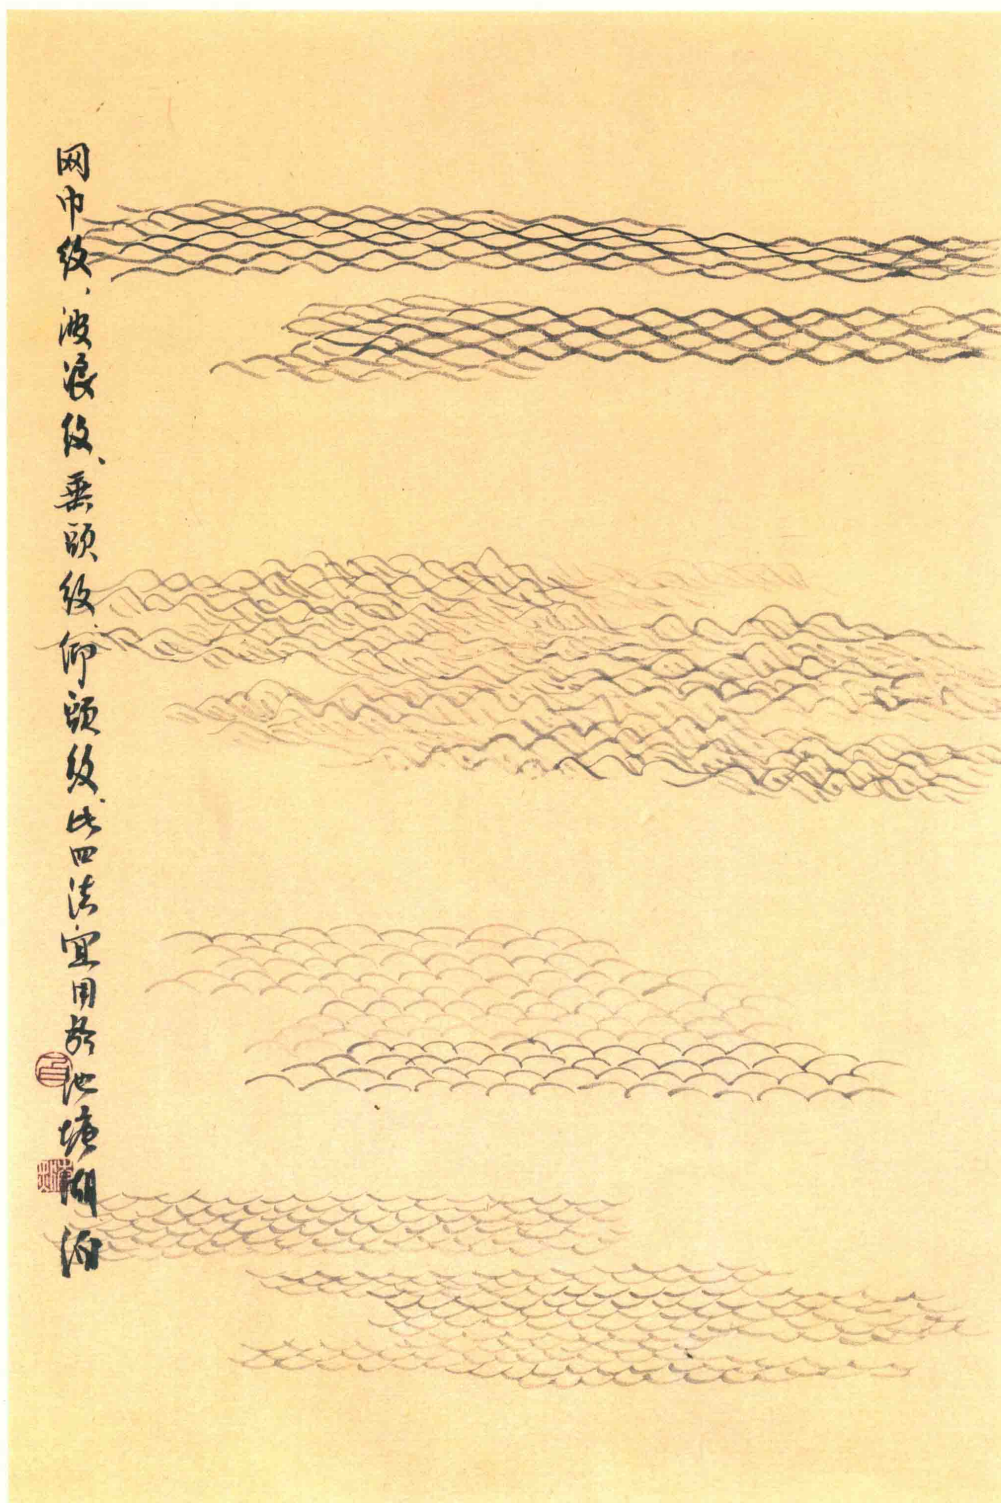 网巾纹、波浪纹、垂頭纹、仰頭纹此四法宜用於池塘湖泊